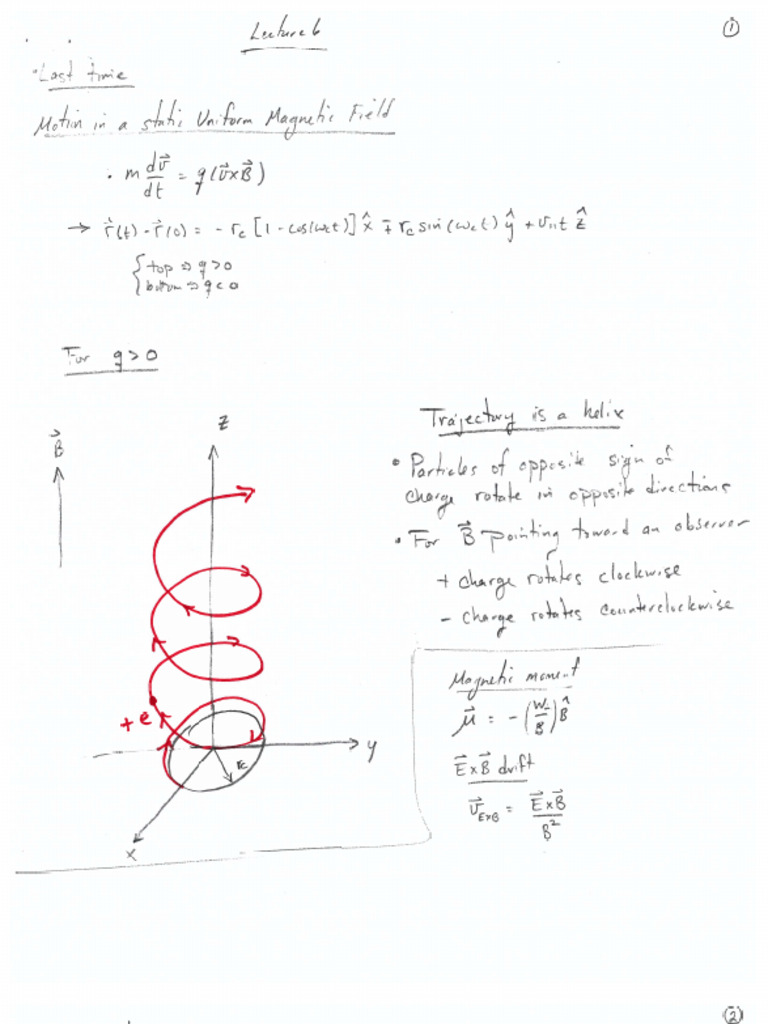 Lecture 6
①
• Last time
Motion in a static Uniform Magnetic Field
• m dv⃗/dt = q(v⃗×B⃗)
→ r⃗(t) - r⃗(0) = - rc [1 - cos(ωct)] x̂ ∓ rc sin(ωct) ŷ + v11t ẑ
{ top ⇒ q>0
bottom ⇒ q<0
For q>0
B⃗
z
+e
rc
y
x
Trajectory is a helix
• Particles of opposite sign of
charge rotate in opposite directions
• For B⃗ pointing toward an observer
+ charge rotates clockwise
- charge rotates counterclockwise
Magnetic moment
μ⃗ = -(W⊥/B) B̂
E⃗×B⃗ drift
v⃗E×B = E⃗×B⃗/B²
②